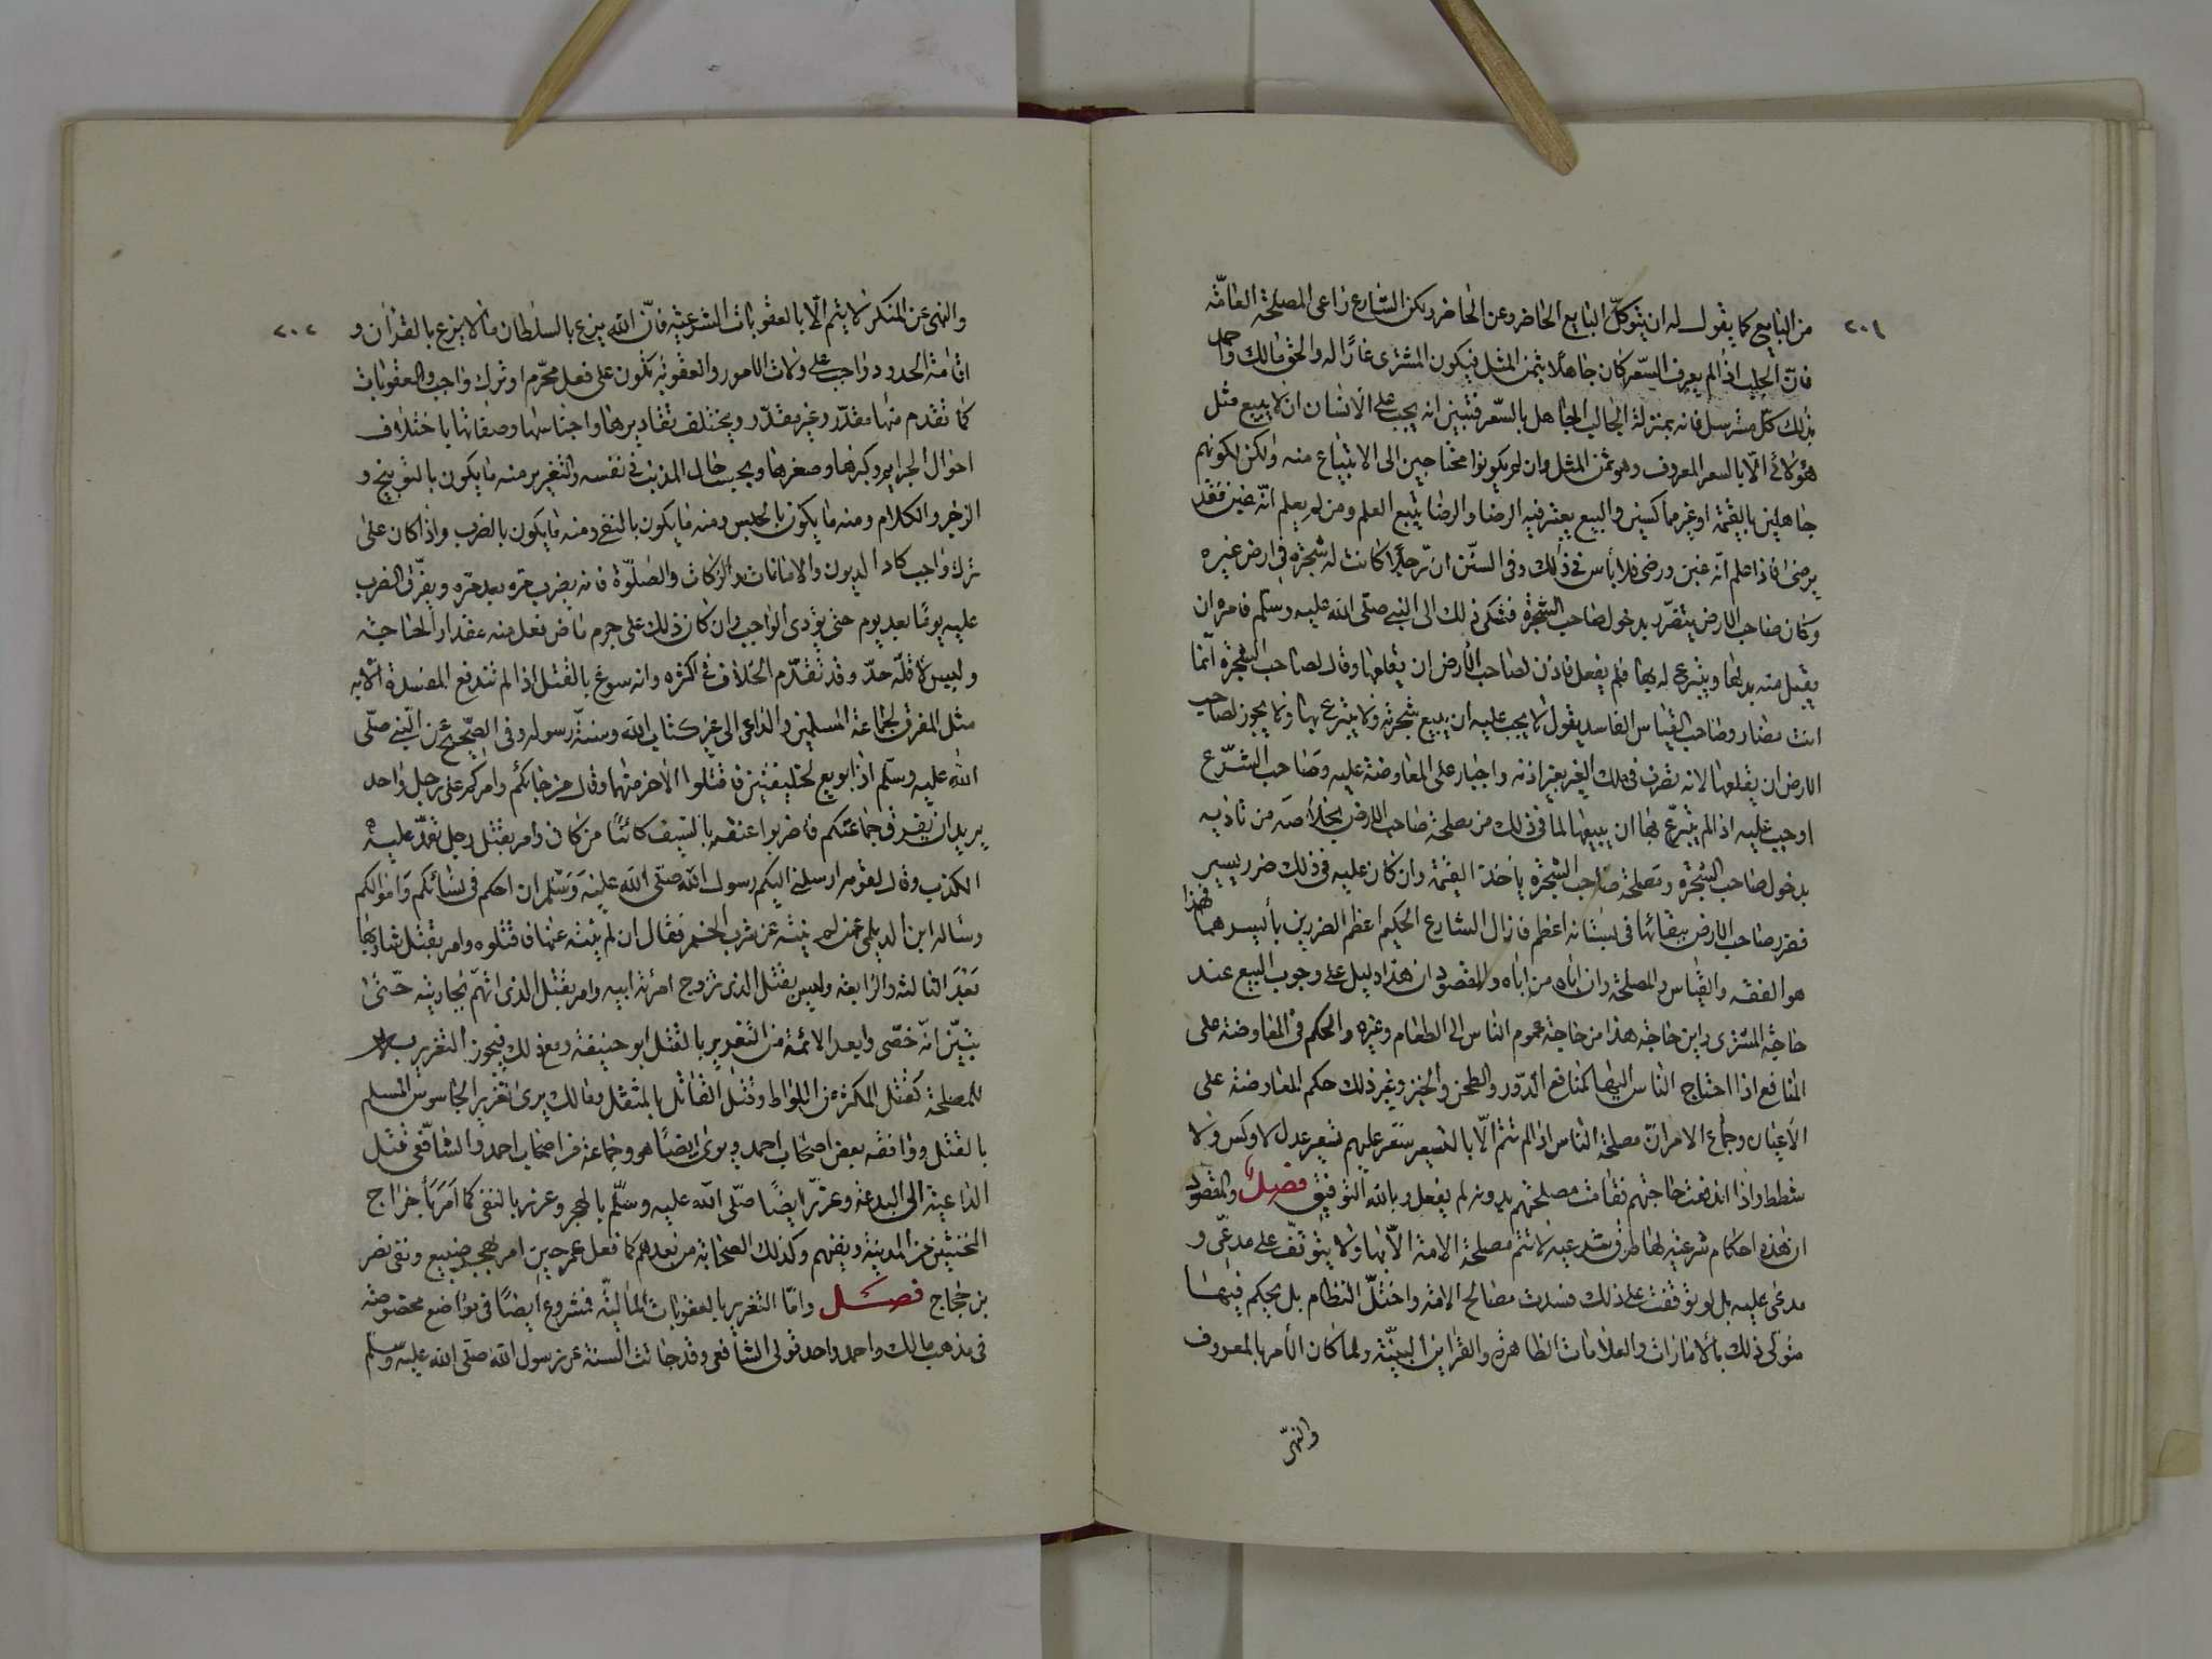 ٢٠١
من البايع كما يقول له ان يتوكل البايع الحاضر وعن الحاضر ولكن الشارع راعى المصلحة العامّة
فانّ الجلب اذا لم يعرف السّعر كان جاهلا بثمن المثل فيكون المشترى غارًّا له والحق مالك واحمد
بذلك كل مسترسل فانه بمنزلة الجالب الجاهل بالسّعر فتبين انه يجب على الانسان ان لا يبيع مثل
هؤلائى الّا بالسعر المعروف وهو ثمن المثل وان لم يكونوا محتاجين الى الابتياع منه ولكن لكونهم
جاهلين بالقيمة او غير مماكسين والبيع يعتبر فيه الرضا والرضا يتبع العلم ومن لم يعلم انّه غبن فقد
يرضى فاذا علم انّه غبن ورضى فلا بأس فى ذلك وفى السنن انّ رجلا كانت له شجرة فى ارض غيره
وكان صاحب الارض يتضرّر بدخول صاحب الشجرة فشكى ذلك الى النبى صلّى الله عليه وسلّم فامره ان
يقبل منه بدلها ويتبرع له بها فلم يفعل فاذن لصاحب الأرض ان يقلعها وقال لصاحب الشجرة انّما
انت مضار وصاحب القياس الفاسد يقول لا يجب عليه ان يبيع شجرته ولا يتبرع بها ولا يجوز لصاحب
الارض ان يقلعها لانه تصرف فى ملك الغير بغير اذنه واجبار على المعاوضة عليه وصاحب الشّرع
اوجب عليه اذا لم يتبرّع بها ان يبيعها لما فى ذلك من مصلحة صاحب الارض بخلاصه من تاذيه
بدخول صاحب الشجرة ومصلحة صاحب الشجرة باخذ القيمة وان كان عليه فى ذلك ضرر يسير
فضرر صاحب الارض ببقائها فى بستانه اعظم فازال الشارع الحكيم اعظم الضررين بأيسرهما فهذا
هو الفقه والقياس والمصلحة وان اباه من اباه والمقصود ان هذا دليل على وجوب البيع عند
حاجة المشترى واين حاجة هذا من حاجة عموم الناس الى الطعام وغيره والحكم فى المعاوضة على
المنافع اذا احتاج الناس اليها كمنافع الدّور والطحن والخبز وغير ذلك حكم المعاوضة على
الاعيان وجماع الامر انّ مصلحة الناس اذا لم تتم الّا بالتسعير سعّر عليهم تسعير عدل لا وكس ولا
شطط واذا اندفعت حاجتهم وقامت مصلحتهم بدونه لم يفعل وبالله التوفيق فصل والمقصود
ان هذه احكام شرعية لها طرق شرعية لا تتم مصلحة الامة الّا بها ولا يتوقف على مدعى و
مدعى عليه بل لو توقفت على ذلك فسدت مصالح الامة واختلّ النظام بل يحكم فيها
متولى ذلك بالامارات والعلامات الظاهرة والقراين البينّة ولما كان الأمر بالمعروف
والنهى
٢٠٢
والنهى عن المنكر لا يتم الّا بالعقوبات الشرعية فانّ الله يزع بالسلطان ما لا يزع بالقرآن و
اقامة الحدود واجب على ولات الامور والعقوبة تكون على فعل محرّم او ترك واجب والعقوبات
كما تقدم منها مقدّر وغير مقدّر ويختلف تقاديرها واجناسها وصفاتها باختلاف
احوال الجرايم وكبرها وصغرها وبحسب حال المذنب فى نفسه والتعزير منه ما يكون بالتوبيخ و
الزجر والكلام ومنه ما يكون بالحبس ومنه ما يكون بالنفى ومنه ما يكون بالضرب واذا كان على
ترك واجب كاداء الديون والامانات والزكات والصّلوة فانه يضرب مرّة بعد مرّة ويفرّق الضرب
عليه يومًا بعد يوم حتى يؤدى الواجب وان كان ذلك على جرم ماض فعل منه مقدار الحاجة
وليس لاقلّه حدّ وقد تقدّم الخلاف فى اكثره وانه سوغ بالقتل اذا لم تندفع المفسدة الّا به
مثل المفرق لجماعة المسلمين والداعى الى غير كتاب الله وسنّة رسوله وفى الصّحيح عن النّبى صلّى
الله عليه وسلّم اذا بويع لخليفتين فاقتلوا الآخر منهما وقال من جائكم وامركم على رجل واحد
يريد ان يفرق جماعتكم فاضربوا عنقه بالسّيف كائنًا من كان وامر بقتل رجل تعمّد عليه
الكذب وقال لقوم ارسلنى اليكم رسول الله صلّى الله عليه وسلم ان احكم فى نسائكم واموالكم
وساله ابن الديلمى عمن لم ينته عن شرب الخمر فقال ان لم ينته عنها فاقتلوه وامر بقتل شاربها
بعد الثالثة والرابعة وامر بقتل الذى تزوج امرئة ابيه وامر بقتل الذى اتهم بجاريته حتّى
تبيّن انّه خصّى وابعد الائمة من التعزير بالقتل ابو حنيفة ومع ذلك فيجوز التعزير به
للمصلحة كقتل المكثر من اللواط وقتل القاتل بالمثقل ومالك يرى تعزير الجاسوس المسلم
بالقتل ووافقه بعض اصحاب احمد ويرى ايضًا هو وجماعة من اصحاب احمد والشافعى قتل
الداعية الى البدعة وعزّر ايضًا صلّى الله عليه وسلّم بالهجر وعزر بالنفى كما امر باخراج
المخنثين من المدينة ونفيهم وكذلك الصحابة من بعدهم كما فعل عمر حين امر بهجر صبيغ ونفى نصر
بن حجاج فصل وامّا التعزير بالعقوبات الماليّة فمشروع ايضًا فى مواضع مخصوصة
فى مذهب مالك واحمد واحد قولى الشافعى وقد جائت السنة عن رسول الله صلّى الله عليه وسلم